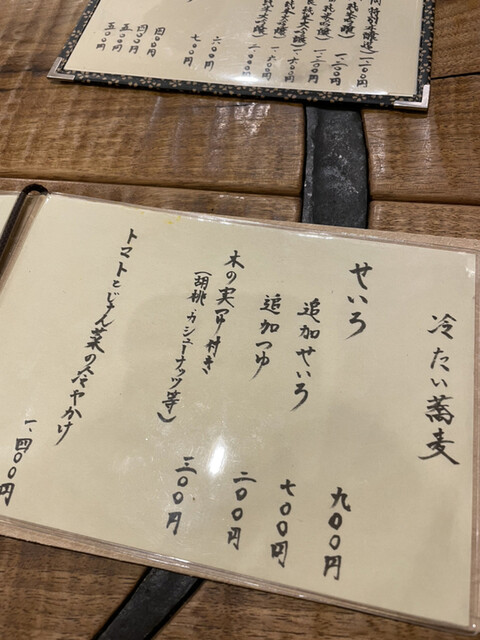 冷たい蕎麦
せいろ 九〇〇円
追加せいろ 七〇〇円
追加つゆ 二〇〇円
木の実つゆ付き
(胡桃・カシューナッツ等) 三〇〇円
トマトとじゅん菜の冷やかけ 一、四〇〇円
特別
純米吟醸
純米大吟醸
六〇〇円
七〇〇円
四〇〇円
四〇〇円
五〇〇円
五〇〇円